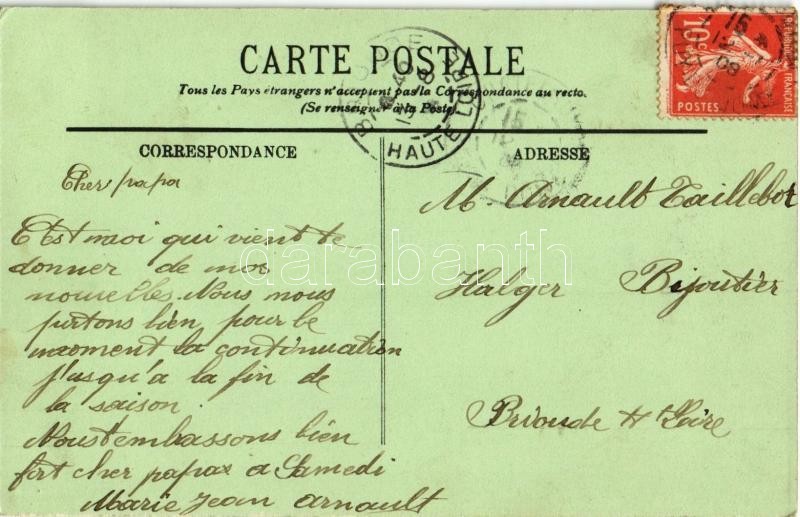 CARTE POSTALE
Tous les Pays étrangers n'acceptent pas la Correspondance au recto.
(Se renseigner à la Poste)
CORRESPONDANCE
Cher papa
C'Est moi qui vient te
donner de mes
nouvelles. Nous nous
portons bien pour le
moment la continuation
j'usqu'a la fin de
la saison.
Nous t'embassons bien
fort cher papa a Samedi
Marie Jean Arnault
ADRESSE
M. Arnault Taillebot
Halger Bijoutier
Brioude Hte Loire
10c
REPUBLIQUE FRANÇAISE
POSTES
HAUTE LOIRE
15
08
darabanth